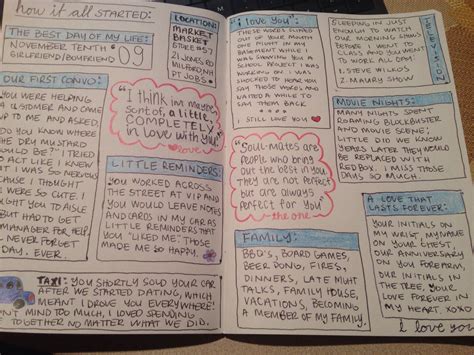 how it all started:
THE BEST DAY OF MY LIFE:
NOVEMBER TENTH
GIRLFRIEND/BOYFRIEND
'09
LOCATION:
MARKET
BASKET
STORE #57
21 JONES RD
MILFORD NH
PT JOBS!
OUR FIRST CONVO:
YOU WERE HELPING
A CUSTOMER AND CAME
UP TO ME AND ASKED,
DO YOU KNOW WHERE
THE DRY MUSTARD
WOULD BE?" I TRIED
TO ACT LIKE I KNEW
IT WAS
BECAUSE I THOUGHT
WERE SO CUTE. I
YOU TO AISLE
BUT HAD TO GET
MANAGER FOR HELP.
NEVER FORGET
EVER THAT DAY.
"I think im maybe,
sort of, a little,
COMPLETELY
in love with you"
love
LITTLE REMINDERS:
YOU WORKED ACROSS
THE STREET AT VIP AND
YOU WOULD LEAVE NOTES
AND CARDS IN MY CAR AS
LITTLE REMINDERS THAT
YOU "LIKED ME." THOSE
MADE ME SO HAPPY.
TAXI: YOU SHORTLY SOLD YOUR CAR
AFTER WE STARTED DATING, WHICH
MEANT I DROVE YOU EVERYWHERE!
MIND TOO MUCH, I LOVED SPENDING
TOGETHER NO MATTER WHAT WE DID.
"i love you":
THESE WORDS SLIPPED
OUT OF YOUR MOUTH
ONE NIGHT IN MY
BASEMENT WHILE I
WAS SHOWING YOU A
SCHOOL PROJECT I WAS
WORKING ON. I WAS
SHOCKED TO HEAR YOU
SAY THOSE WORDS AND
WAITED A WHILE TO
SAY THEM BACK.
I STILL LOVE YOU
"SOUL-MATES are
people who bring
out the best in you.
They are not perfect
but are always
perfect for you"
the one
FAMILY:
BBQ'S, BOARD GAMES,
BEER PONG, FIRES,
DINNERS, LATE NIGHT
TALKS, FAMILY HOUSE,
VACATIONS, BECOMING
A MEMBER OF MY FAMILY.
TELEVISION
SLEEPING IN JUST
ENOUGH TO WATCH
OUR MORNING SHOWS
BEFORE I WENT TO
CLASS AND YOU WENT
TO WORK ALL DAY:
1. STEVE WILKOS
2. MAURY SHOW
MOVIE NIGHTS:
MANY NIGHTS SPENT
ROAMING BLOCKBUSTER
AND MOVIE SCENE;
LITTLE DID WE KNOW
YEARS LATER THEY WOULD
BE REPLACED WITH
REDBOX. I MISS THOSE
DAYS SO MUCH!
A LOVE THAT
LASTS FOREVER:
YOUR INITIALS ON
MY WRIST, MY NAME
ON YOUR CHEST,
OUR ANNIVERSARY
ON YOU FOREARM
OUR INITIALS IN
THE TREE, YOUR
LOVE FOREVER IN
MY HEART. XOXO
I love you